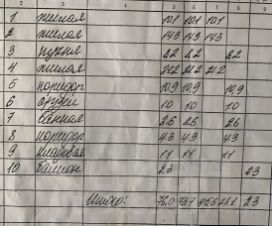 1 жилая 10.1 10.1 10.1
2 жилая 14.3 14.3 14.3
3 кухня 8.2 8.2 8.2
4 жилая 21.2 21.2 21.2
5 коридор 10.9 10.9 10.9
6 1.0 1.0 1.0
7 ванная 2.6 2.6 2.6
8 коридор 4.3 4.3 4.3
9 кладовая 1.1 1.1 1.1
10 балкон 2.3 2.3
Итого: 76.0 73.7 45.6 28.1 2.3